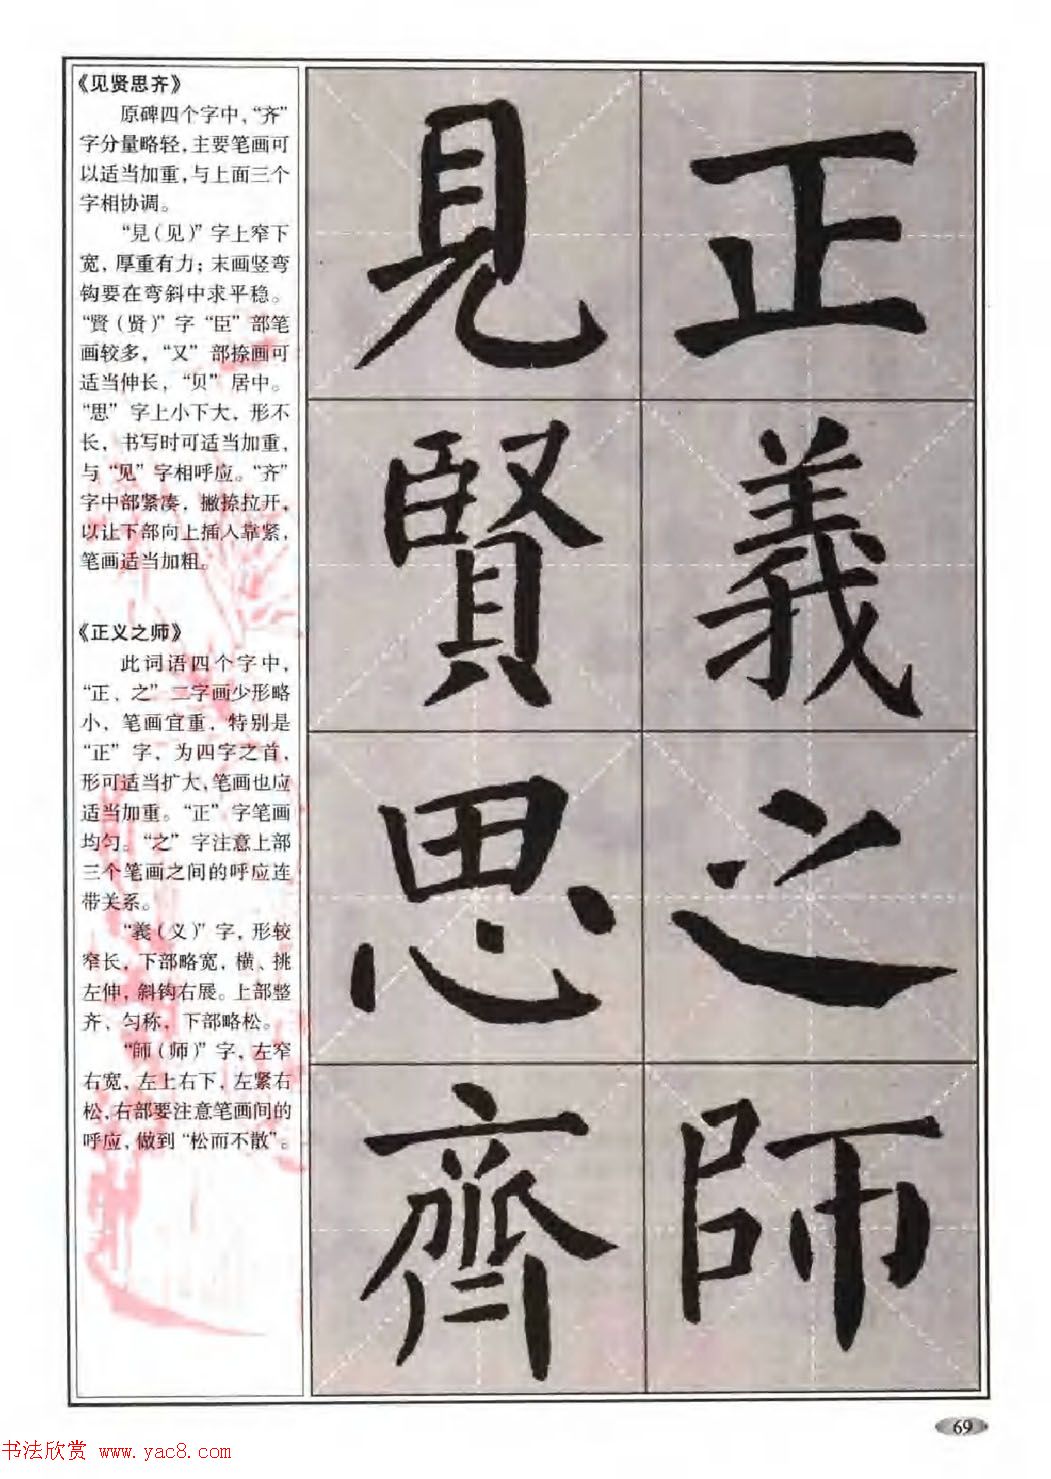 《见贤思齐》
原碑四个字中，“齐”
字分量略轻，主要笔画可
以适当加重，与上面三个
字相协调。
“見（见）”字上窄下
宽，厚重有力；末画竖弯
钩要在弯斜中求平稳。
“賢（贤）”字“臣”部笔
画较多，“又”部捺画可
适当伸长，“贝”居中。
“思”字上小下大，形不
长，书写时可适当加重，
与“见”字相呼应。“齐”
字中部紧凑，撇捺拉开，
以让下部向上插入靠紧，
笔画适当加粗。
《正义之师》
此词语四个字中，
“正、之”二字画少形略
小，笔画宜重，特别是
“正”字，为四字之首，
形可适当扩大，笔画也应
适当加重。“正”字笔画
均匀。“之”字注意上部
三个笔画之间的呼应连
带关系。
“義（义）”字，形较
窄长，下部略宽，横、挑
左伸，斜钩右展。上部整
齐、匀称，下部略松。
“師（师）”字，左窄
右宽，左上右下，左紧右
松，右部要注意笔画间的
呼应，做到“松而不散”。
正義之師
見賢思齊
69
书法欣赏 www.yac8.com